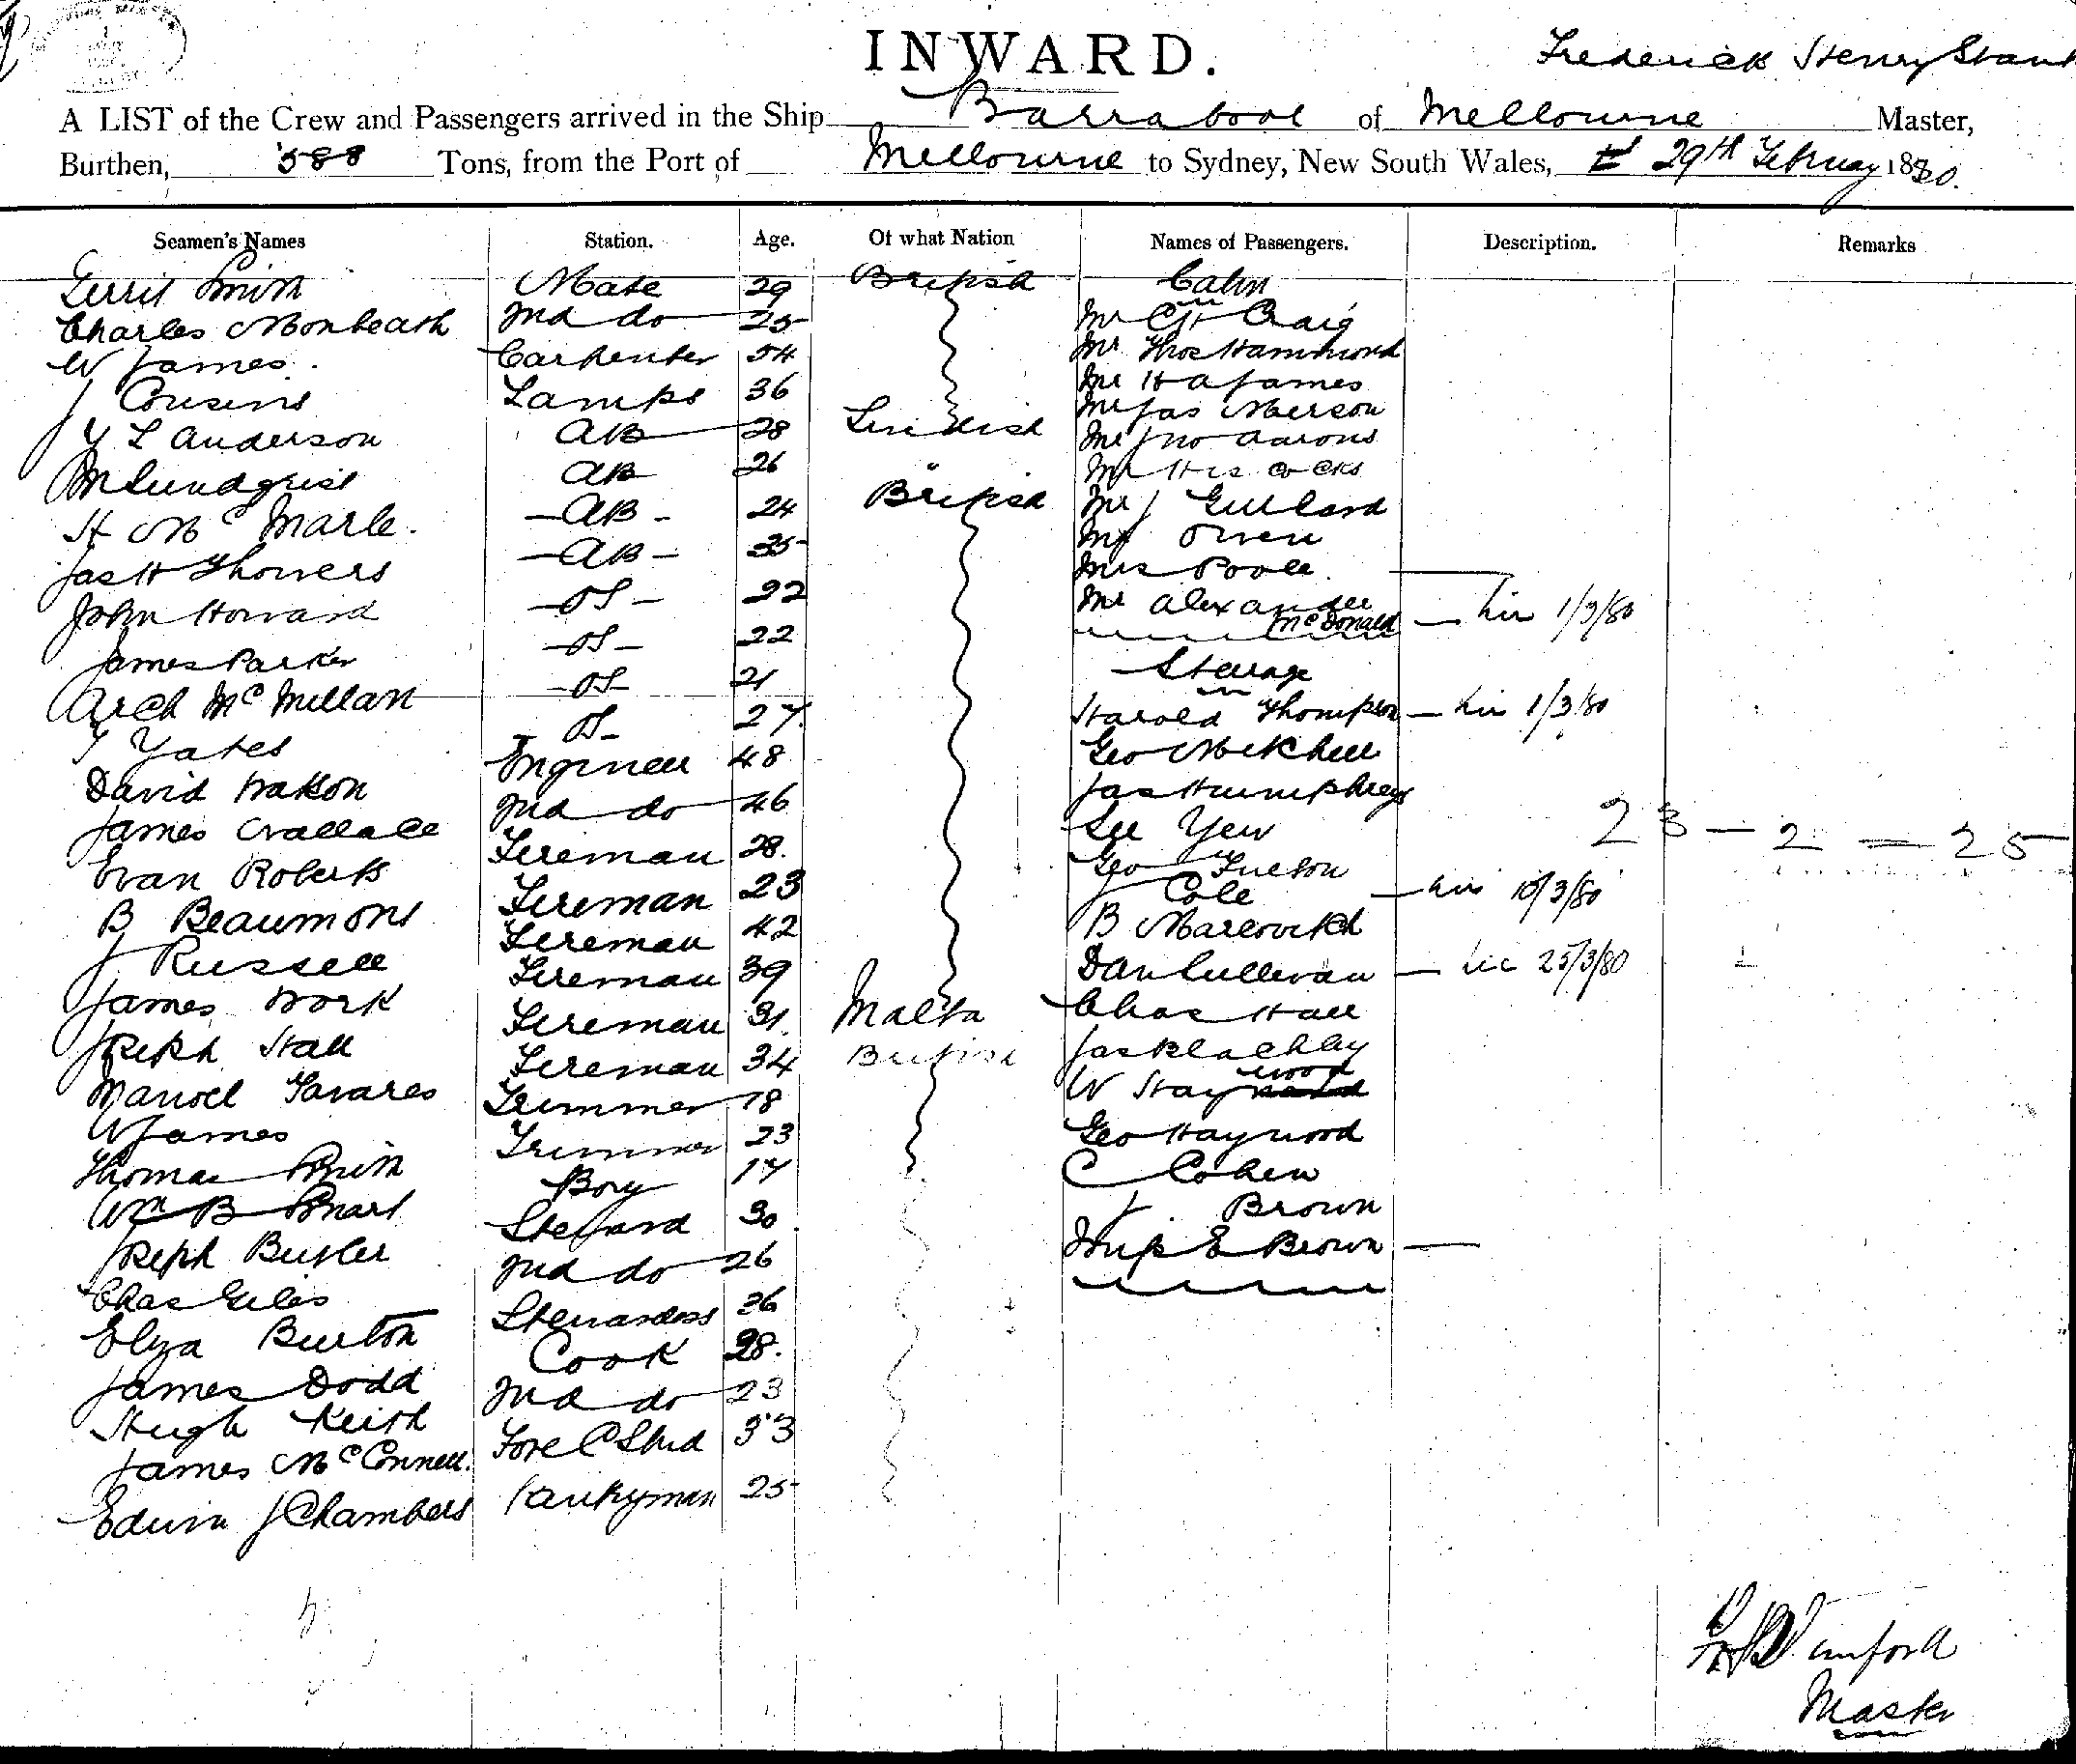 INWARD.
Frederick Henry
A LIST of the Crew and Passengers arrived in the Ship Barrabool of Melbourne Master,
Burthen, 588 Tons, from the Port of Melbourne to Sydney, New South Wales, 29th February 1880.
Seamen's Names Station. Age. Of what Nation Names of Passengers. Description. Remarks
Gerrit Smith Mate 29 British Cabin
Charles Monteath 2nd do 25 Mr Craig
W James. Carpenter 54 Mr Thos Hammond
J Cousins Lamps 36 Mr H A James
Y L Anderson AB 28 Swedish Mr Jas Merson
M Lundqrist AB 26 " Mr Jno Aarons
H Mc Marle. AB 24 British Mr Hiscocks
Jas H Showers AB 35 Mr J Gullard
John Howard OS 22 Mr Owen
James Parker OS 22 Mrs Poole
Arch McMillan OS 21 Mr Alexander McDonald 1/3/80
T Yates OS 27 Steerage
David Watson Engineer 48 Harold Thompson 1/3/80
James Wallace 2nd do 46 Geo Mitchell
Evan Roberts Fireman 28. Jas Humphreys
B Beaumont Fireman 23 See Yew
J Russell Fireman 42 Geo Tuelon
James Work Fireman 39 J Cole 10/3/80
Joseph Hall Fireman 31 Malta B Marcovitch
Manoel Tavares Fireman 34 British Dan Cullivan 25/3/80
W James Trimmer 18 Chas Hall
Thomas Smith Trimmer 23 Jas Blachley
Wm B Smart Boy 17 W Haywood
Joseph Butler Steward 30 Geo Haywood
Chas Giles 2nd do 26 C Cohen
Elyza Burton Stewardess 36 J. Brown
James Dodd Cook 28. E Brown
Hugh Keith 2nd do 23
James McConnell. Fore C Stwd 33
Edwin J Chambers 25
23 - 2 = 25
Master